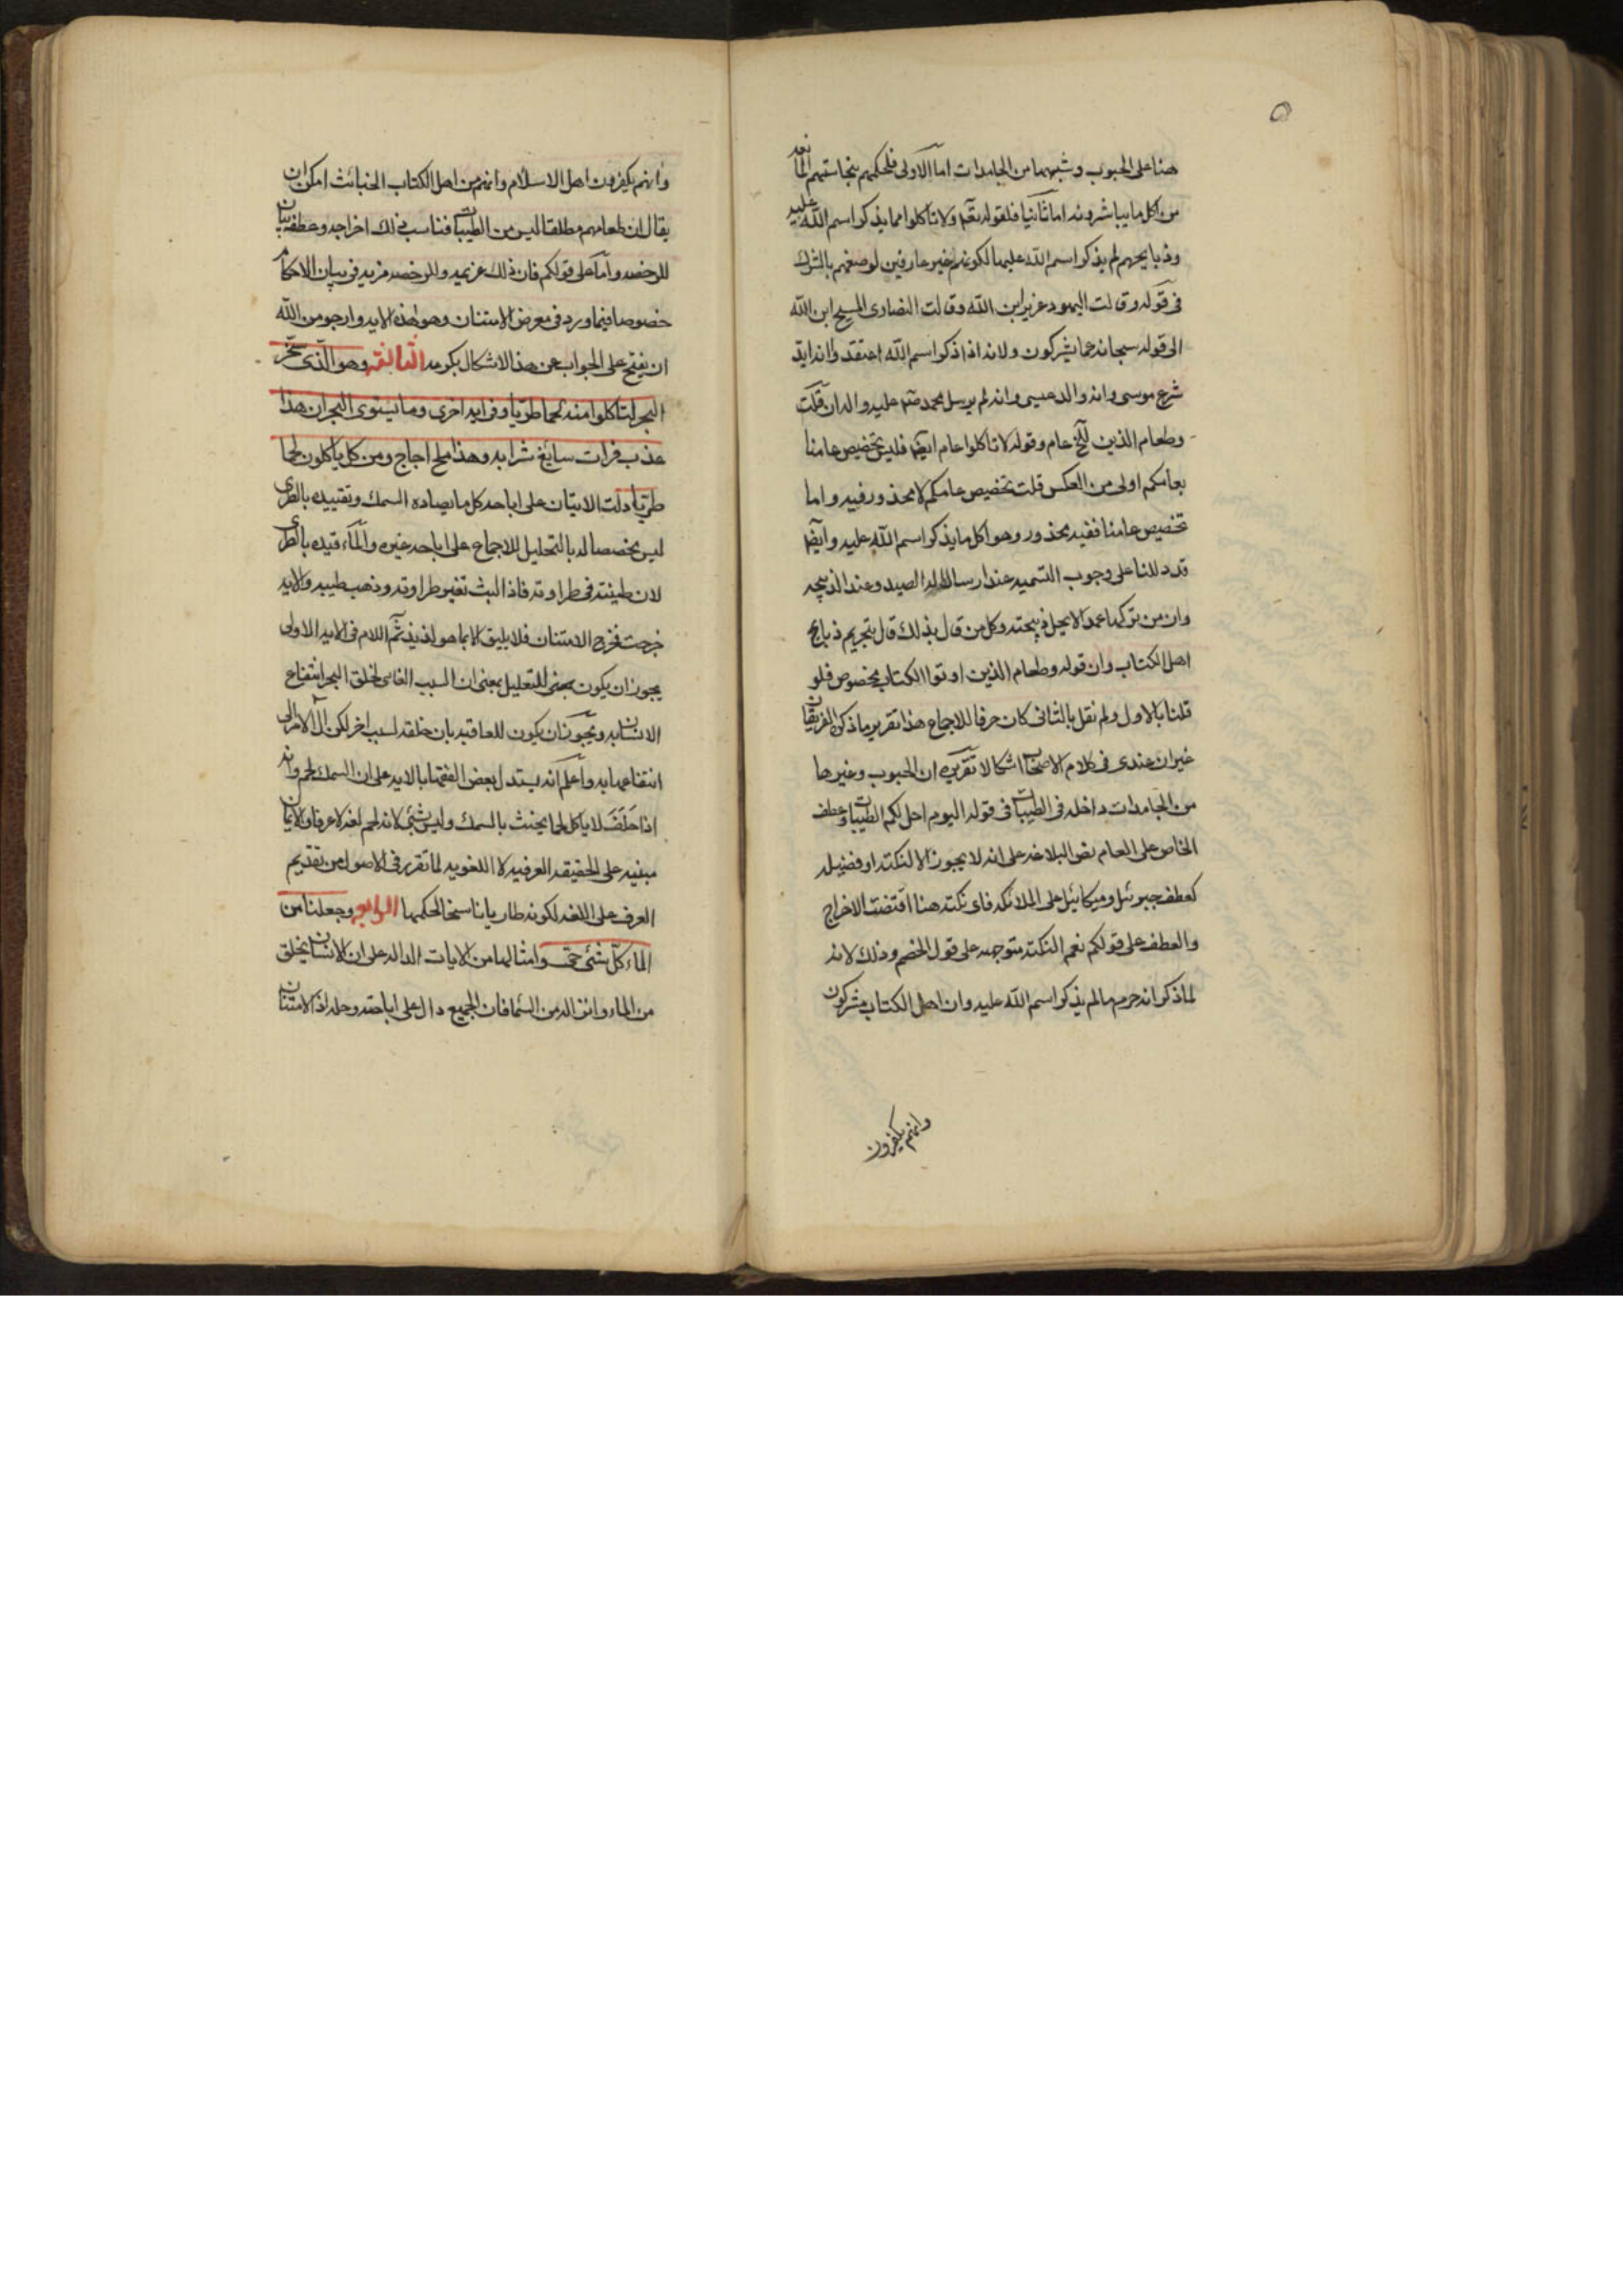 هنا على الحبوب وشبهها من الجامدات اما الاولى فلحكمهم بنجاستهم المانعه
من اكل ما يباشرونه اما ثانيا فلقوله تعه ولا تاكلوا مما لم يذكر اسم الله عليه
وذبايحهم لم يذكر اسم الله عليها لكونهم غير عارفين لوصفهم بالشرك
فى قوله وقالت اليهود عزير ابن الله وقالت النصارى المسيح ابن الله
الى قوله سبحانه عما يشركون ولانه اذا ذكر اسم الله اعتقد وانه ابد
شرع موسى وانه والد عيسى وانه لم يرسل محمد صم عليه واله ان قلت
وطعام الذين آلخ عام وقوله لا تاكلوا عام ايضا فليس تخصيص عامنا
بعامكم اولى من العكس قلت تخصيص عامكم لا محذور فيه واما
تخصيص عامنا ففيه محذور وهو اكل ما لم يذكر اسم الله عليه وايضا
قد دللنا على وجوب التسميه عند ارسال اله الصيد وعند الذبيحه
وان من تركها عمدا لا يحل ذبيحته وكل من قال بذلك قال بتحريم ذبايح
اهل الكتاب وان قوله وطعام الذين اوتوا الكتاب مخصوص فلو
قلنا بالاول ولم نقل بالثانى كان خرقا للاجماع هذا تقرير ما ذكره الفريقان
غير ان عندى فى كلام الاصحاب اشكالا تقريره ان الحبوب وغيرها
من الجامدات داخله فى الطيبات فى قوله اليوم احل لكم الطيبات وعطف
الخاص على العام نص البلاغه على انه لا يجوز الا لنكته او فضيله
كعطف جبرئيل وميكائيل على الملائكه فاى نكته هنا اقتضت الاخراج
والعطف على قولكم نعم النكته متوجهه على قول الخصم وذلك لانه
لما ذكر انه حرم ما لم يذكر اسم الله عليه وان اهل الكتاب مشركون
وانهم يكفرون
وانهم يكفرون اهل الاسلام وانهم من اهل الكتاب الخبائث امكن ان
يقال ان طعامهم مطلقا ليس من الطيبات فناسب ذلك اخراجه وعطفه بيان
للرخصه واما على قولكم فان ذلك عزيمه وللرخصه مزيه فى بيان الاحكام
خصوصا فيما ورد فى معرض الامتنان وهو هذه الايه وارجو من الله
ان يفتح على الجواب عن هذا الاشكال بكرمه الثالثه وهو الذى سخر
البحر لتاكلوا منه لحما طريا وفى ايه اخرى وما يستوى البحران هذا
عذب فرات سايغ شرابه وهذا ملح اجاج ومن كل ياكلون لحما
طريا دلت الايتان على اباحه كل ما يصاد من السمك وتقييده بالطرى
ليس مخصصا له بالتحليل للاجماع على اباحه غيره وانما قيده بالطرى
لان طيبته فى طراوته فاذا لبث تغير طراوته وذهب طيبه والايه
خرجت مخرج الامتنان فلا يليق الا بما هو لذيذ ثم اللام فى الايه الاولى
يجوز ان يكون للتعليل بمعنى ان السبب الغائى لخلق البحر انتفاع
الانسان به ويجوز ان يكون للعاقبه بان خلقه لسبب اخر لكن آل الامر الى
انتفاعها به واعلم انه يستدل بعض الفقها بالايه على ان السمك لحم وانه
اذا حلف لا ياكل لحما يحنث بالسمك وليس بشئ لانه لحم لغه لا عرفا والايمان
مبنيه على الحقيقه العرفيه لا اللغويه لما تقرر فى الاصول من تقديم
العرف على اللغه لكونه طاريا ناسخا لحكمها الرابعه وجعلنا من
الماء كل شئ حى وامثالها من الايات الداله على ان الانسان يخلق
من الماء وانزاله من السما فان الجميع دال على اباحته وحله اذ الامتنان